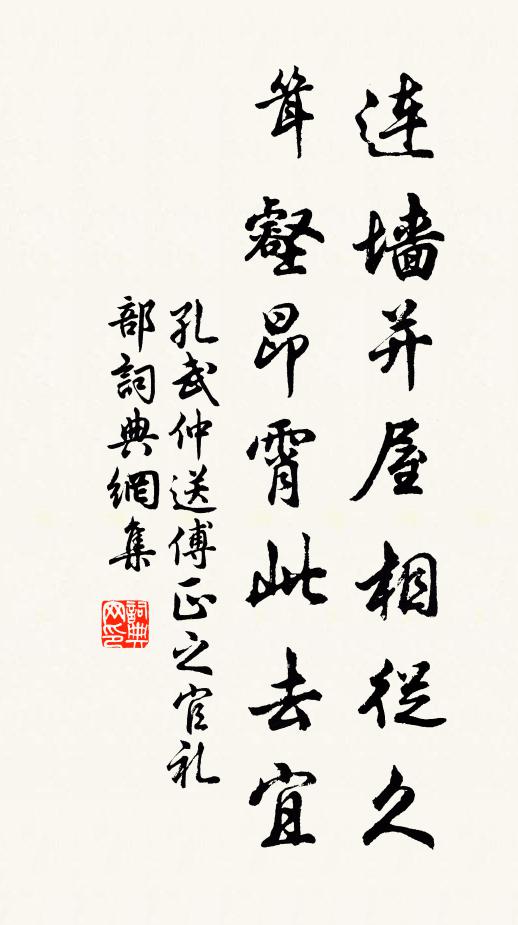 連墙并屋相從久
耸壑昂霄此去宜
孔武仲送傅正之官礼
部詞典網集
詞典网印